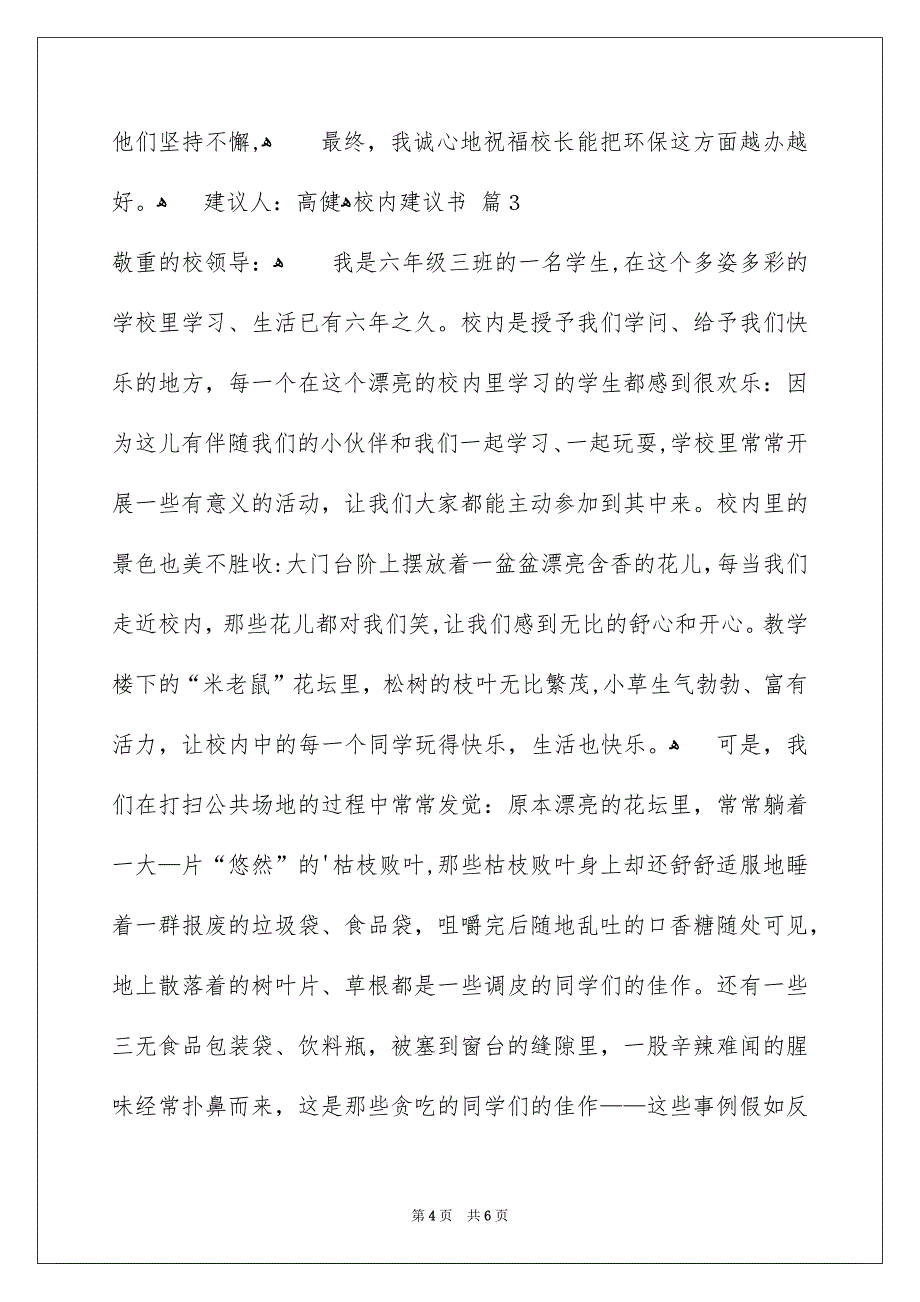 他们坚持不懈,ﻫ　　最终，我诚心地祝福校长能把环保这方面越办越
好。ﻫ　建议人：高健ﻫ校内建议书 篇3
敬重的校领导：ﻫ　　我是六年级三班的一名学生,在这个多姿多彩的
学校里学习、生活已有六年之久。校内是授予我们学问、给予我们快
乐的地方，每一个在这个漂亮的校内里学习的学生都感到很欢乐：因
为这儿有伴随我们的小伙伴和我们一起学习、一起玩耍,学校里常常开
展一些有意义的活动，让我们大家都能主动参加到其中来。校内里的
景色也美不胜收:大门台阶上摆放着一盆盆漂亮含香的花儿，每当我们
走近校内，那些花儿都对我们笑,让我们感到无比的舒心和开心。教学
楼下的“米老鼠”花坛里，松树的枝叶无比繁茂,小草生气勃勃、富有
活力，让校内中的每一个同学玩得快乐，生活也快乐。ﻫ　可是，我
们在打扫公共场地的过程中常常发觉：原本漂亮的花坛里，常常躺着
一大—片“悠然”的'枯枝败叶,那些枯枝败叶身上却还舒舒适服地睡
着一群报废的垃圾袋、食品袋，咀嚼完后随地乱吐的口香糖随处可见，
地上散落着的树叶片、草根都是一些调皮的同学们的佳作。还有一些
三无食品包装袋、饮料瓶，被塞到窗台的缝隙里，一股辛辣难闻的腥
味经常扑鼻而来，这是那些贪吃的同学们的佳作——这些事例假如反
第 4 页　共 6 页